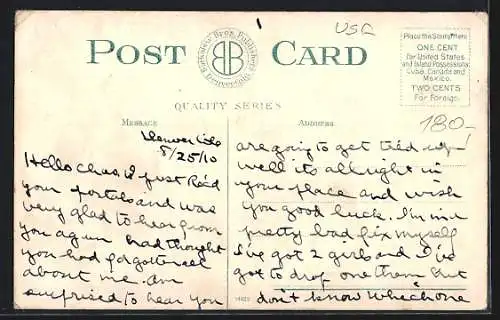 USA
POST CARD
Bamforth Bros. Publishers
Denver, Colo.
QUALITY SERIES
Place the Stamp Here
ONE CENT
for United States
and Island Possessions
Cuba, Canada and
Mexico.
TWO CENTS
For Foreign.
180-
MESSAGE
ADDRESS
Denver Colo
8/25/10
Hello Chas, I just Rec'd
your portals and was
very glad to hear from
you again had thought
you had forgotten all
about me. am
surprised to hear you
are going to get tied up
well its all right in
your place and wish
you good luck. I'm in a
pretty bad fix myself
I've got 2 girls and I've
got to drop one them but
don't know which one